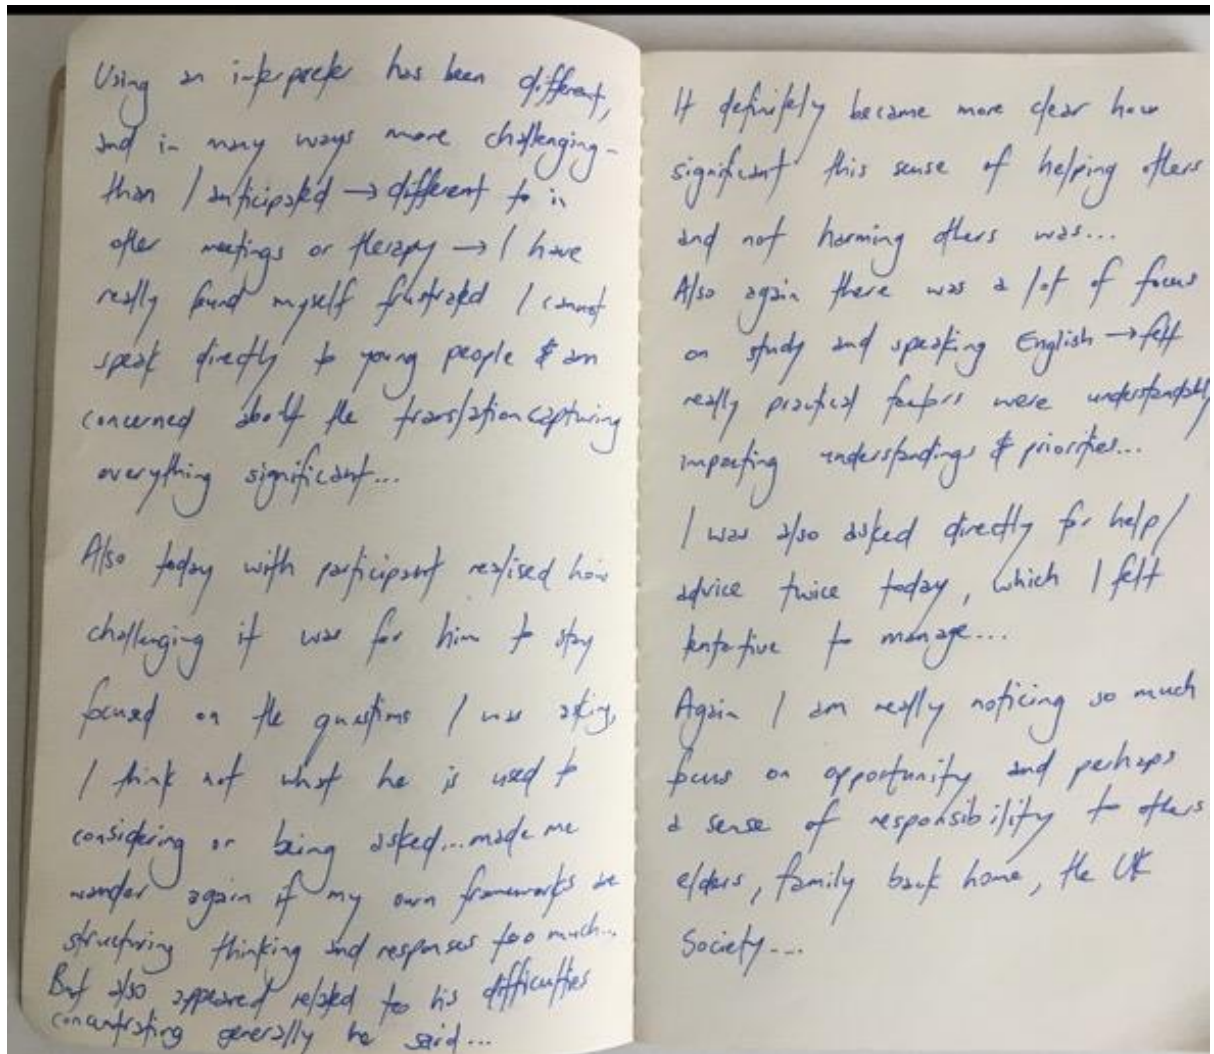 Using an interpreter has been different,
and in many ways more challenging -
than I anticipated → different to in
other meetings or therapy → I have
really found myself frustrated I cannot
speak directly to young people & am
concerned about the translation capturing
everything significant...
Also today with participant realised how
challenging it was for him to stay
focused on the questions I was asking,
I think not what he is used to
considering or being asked...made me
wonder again if my own frameworks are
structuring thinking and responses too much...
But also appeared related to his difficulties
concentrating generally he said...
It definitely became more clear how
significant this sense of helping others
and not harming others was...
Also again there was a lot of focus
on study and speaking English → felt
really practical factors were understandably
impacting understandings & priorities...
I was also asked directly for help/
advice twice today, which I felt
tentative to manage...
Again I am really noticing so much
focus on opportunity and perhaps
a sense of responsibility to others
elders, family back home, the UK
Society...